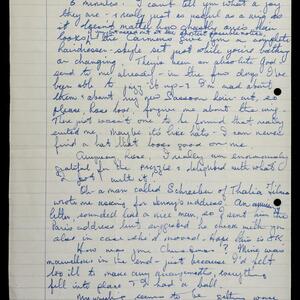 5 minutes. I can't tell you what a joy
they are - I really just so useful as a wig do
it doesn't matter
look the Carmens give you a complete
hairdresser-style set just while you're bathing
or changing. They've been an absolute god
send to me already - in the few days I've
been able to jazz it up - I'm mad about
them & about my new Sassoon hair-cut, so
please has lost forgive me about the wig.
The just wasn't one to be found that really
suited me. Maybe it's like hats - I can never
find a hat that looks good on me.
Anyway here I really am enormously
grateful for the prezzie & delighted with what
I got with it!
Oh a man called Schreiber of Thalia Films
wrote me asking for Jenny's address. An
letter, sounded like a nice man, so I sent him the
Paris address but suggested he check with you
also in case she'd moved. Hope this is OK
How was your Christmas? Mine was
marvellous in the end - just because I'd felt
too ill to make any arrangements, everything
fell into place & I had a ball.
My seems to be